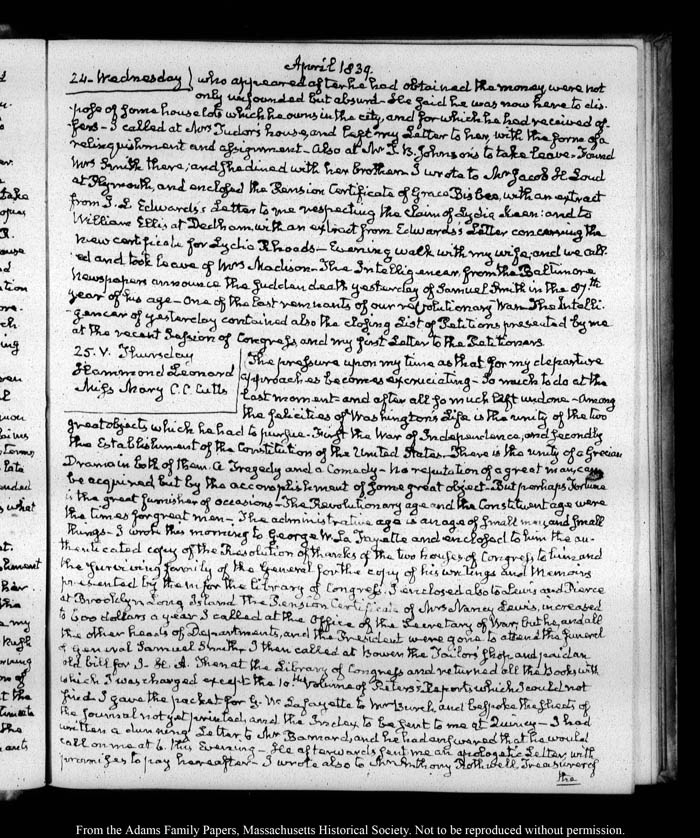 April 1839.
24. Wednesday) who appeared after he had obtained the money, were not
only unfounded but absurd. He said he was now here to dis-
pose of some house lots which he owns in the city, and for which he had received of-
fers. I called at Mrs Tudor's house, and left my Letter to her, with the form of a
relinquishment and assignment. Also at Mr. I. B. Johnson's to take leave. Found
Mrs Smith there; and she dined with her brother. I wrote to Mr Jacob H. Loud
at Plymouth, and enclosed the Pension Certificate of Grace Bisbee, with an extract
from J. L. Edwards's Letter to me respecting the claim of Lydia Keen: and to
William Ellis at Dedham, with an extract from Edwards's Letter concerning the
new certificate for Lydia Rhoads. Evening walk with my wife, and we call-
ed and took leave of Mrs Madison. The Intelligencer, from the Baltimore
Newspapers announce the sudden death yesterday of Samuel Smith in the 87th
year of his age. One of the last remnants of our revolutionary War. The Intelli-
gencer of yesterday contained also the closing List of Petitions presented by me
at the recent Session of Congress and my first Letter to the Petitioners.
25. V. Thursday
Hammond Leonard
Miss Mary C. C. Cutts
The pressure upon my time as that for my departure
approaches becomes excruciating. So much to do at the
last moment and after all so much left undone. Among
the felicities of Washington's Life is the unity of the two
great objects which he had to pursue. First the War of Independence, and secondly
the Establishment of the Constitution of the United States. There is the unity of a Grecian
Drama in both of them. A Tragedy and a Comedy. No reputation of a great man, can
be acquired but by the accomplishment of some great object. But perhaps Fortune
is the great furnisher of occasions. The Revolutionary age and the Constituent age were
the times for great men. The administrative age is an age of small men, and small
things. I wrote this morning to George W. La Fayette and enclosed to him the au-
thenticated copy of the Resolution of thanks of the two houses of Congress to him and
the surviving family of the General for the copy of his writings and Memoirs
presented by them for the Library of Congress. I enclosed also to Lewis and Pierce
at Brooklyn Long Island the Pension Certificate of Mrs Nancy Lewis, increased
to 600 dollars a year. I called at the Office of the Secretary of War, but he, and all
the other heads of Departments, and the President were gone to attend the funeral
of General Samuel Smith. I then called at Bowen the Tailors shop and paid an
old bill for J. H. A. Then at the Library of Congress and returned all the Books with
which I was charged except the 10th volume of Peters's Reports which I could not
find. I gave the packet for G. W. Lafayette to Mr Burch and bespoke the sheets of
the Journal not yet printed, and the Index to be sent to me at Quincy. I had
written a dunning Letter to Mr Barnard, and he had answered that he would
call on me at 6. this Evening. He afterwards sent me an apologetic Letter, with
promises to pay hereafter. I wrote also to Mr Anthony Rothwell, Treasurer of
the
From the Adams Family Papers, Massachusetts Historical Society. Not to be reproduced without permission.